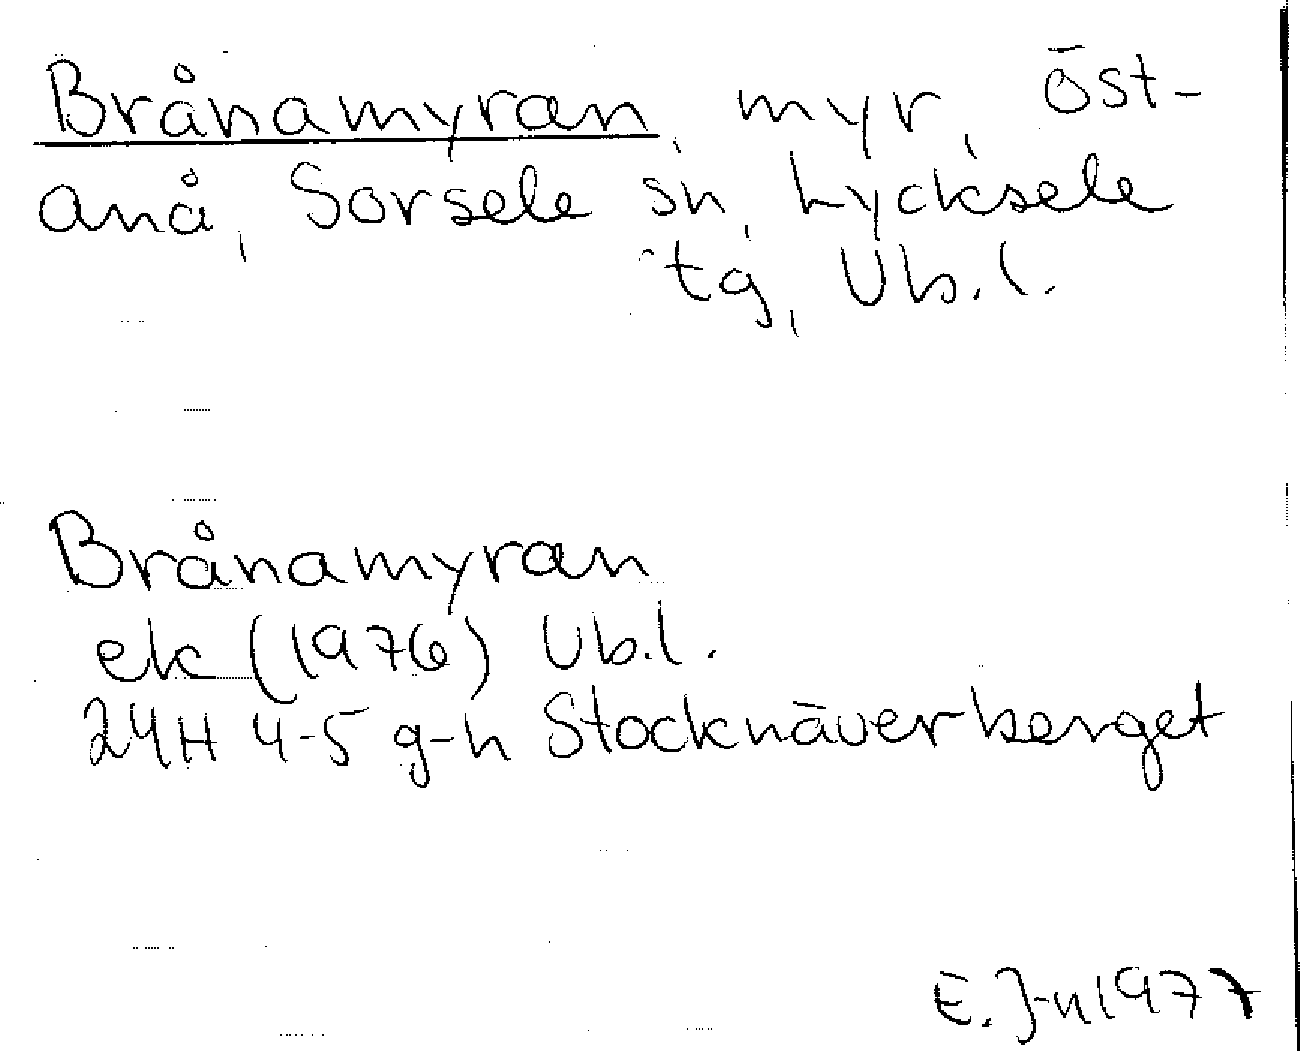 Brånamyran, myr, Öst-
anå, Sorsele sn, Lycksele
tg, Vb.l.
Brånamyran
ek (1976) Vb.l.
24H 4-5 g-h Stocknäverberget
E. J-n 1977